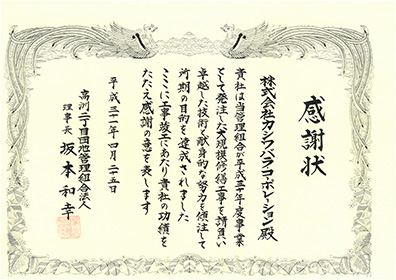 感謝状
株式会社カシワバラコーポレーション殿
貴社は当管理組合が平成三十年度事業
として発注した大規模修繕工事を請負い
卓越した技術と献身的な努力を傾注して
所期の目的を達成されました
ここに工事竣工にあたり貴社の功績を
たたえ感謝の意を表します
平成三十一年四月二十五日
高洲二丁目団地管理組合法人
理事長 坂本和幸